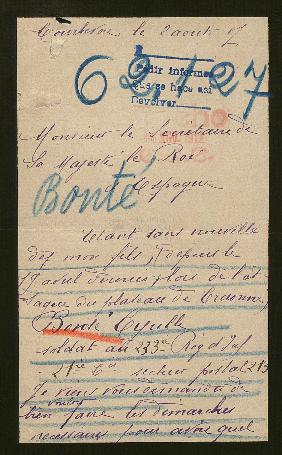 Courbevoie le 2 aout 17
62127
Pedir informes
que se hace así
Devolver
Monsieur le Secretaire de
Sa Majesté le Roi
Espagne
Bonté
Etant sans nouvelle
de mon fils, depuis le
17 avril dernier, lors de l'at
taque du plateau de Craonne,
Bonté Cyrille
soldat au 233e Reg d'Inf
21e Cie secteur postal 213
Je viens vous demander de
vouloir
bien faire les demarches
necessaires pour avoir quel